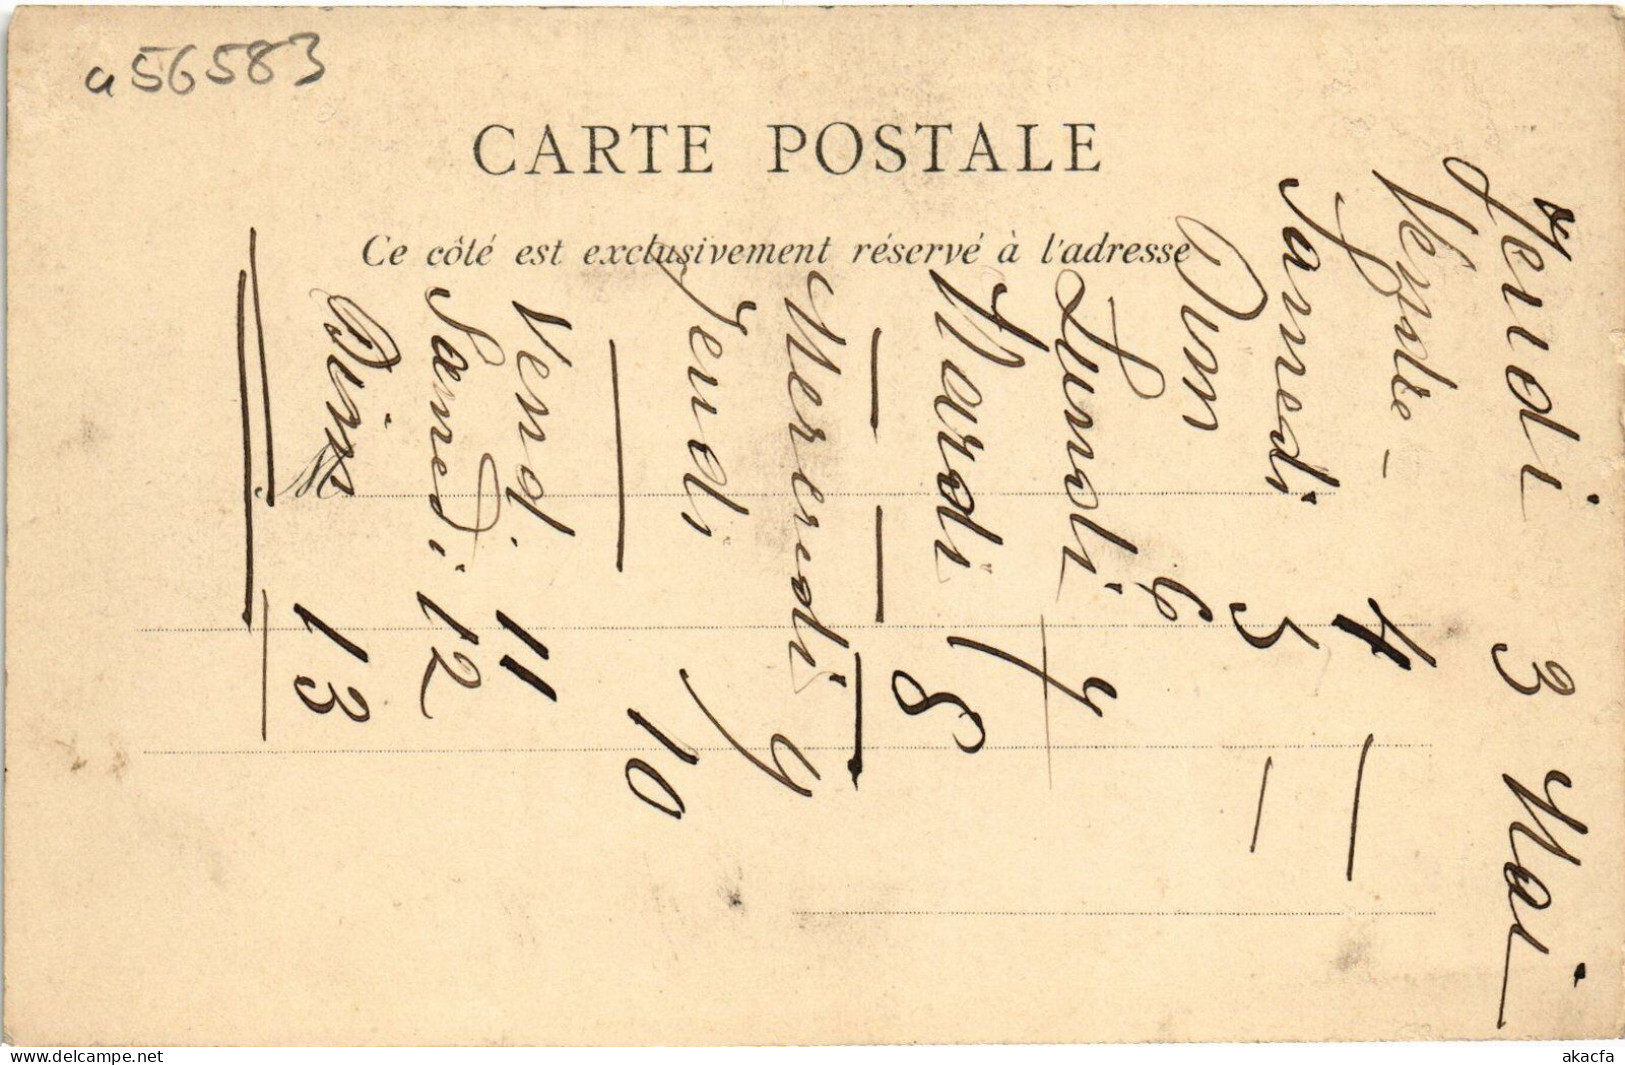 a56583
CARTE POSTALE
Ce côté est exclusivement réservé à l'adresse
M
Jeudi 3 Mai
4
Samedi 5
Dim 6
Lundi 7
Mardi 8
Mercredi 9
Jeudi 10
Vend. 11
Samedi 12
Dim 13
www.delcampe.net
akacfa